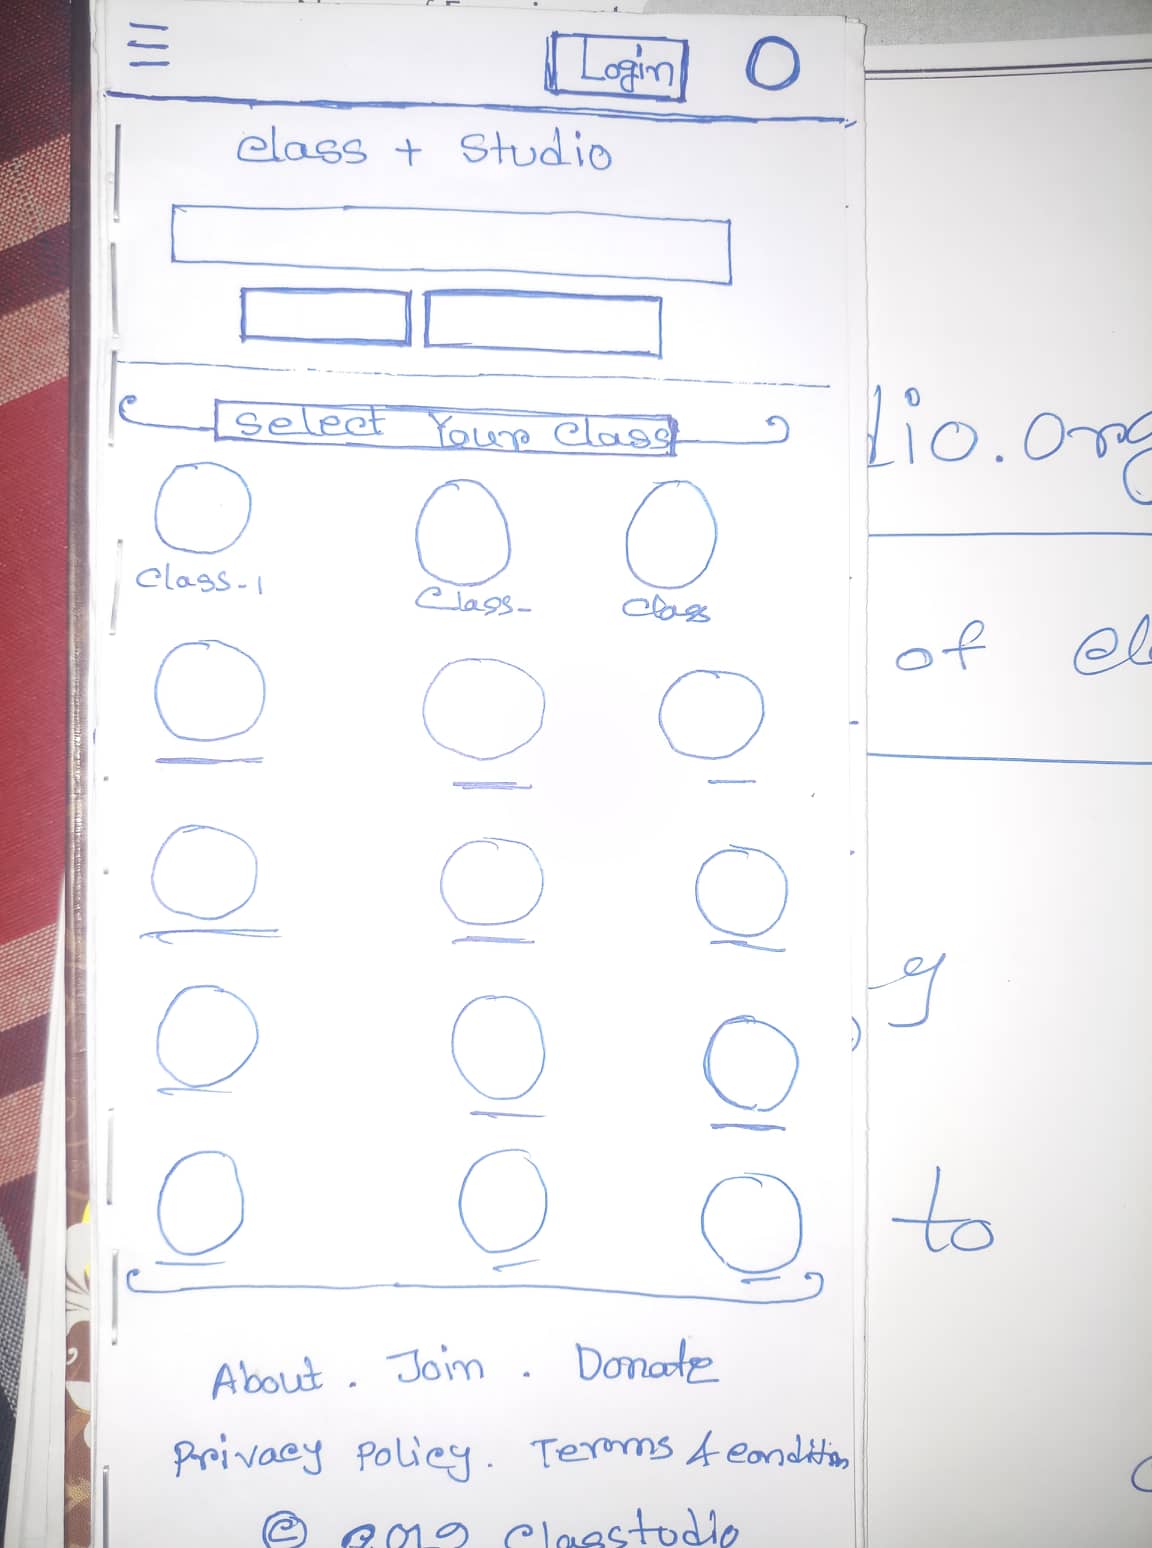 Login
Class + Studio
Select Your Class
Class-1
Class-
Class
About . Join . Donate
Privacy Policy. Terms & Condition
© 2019 Classtudio
dio.org
of
to